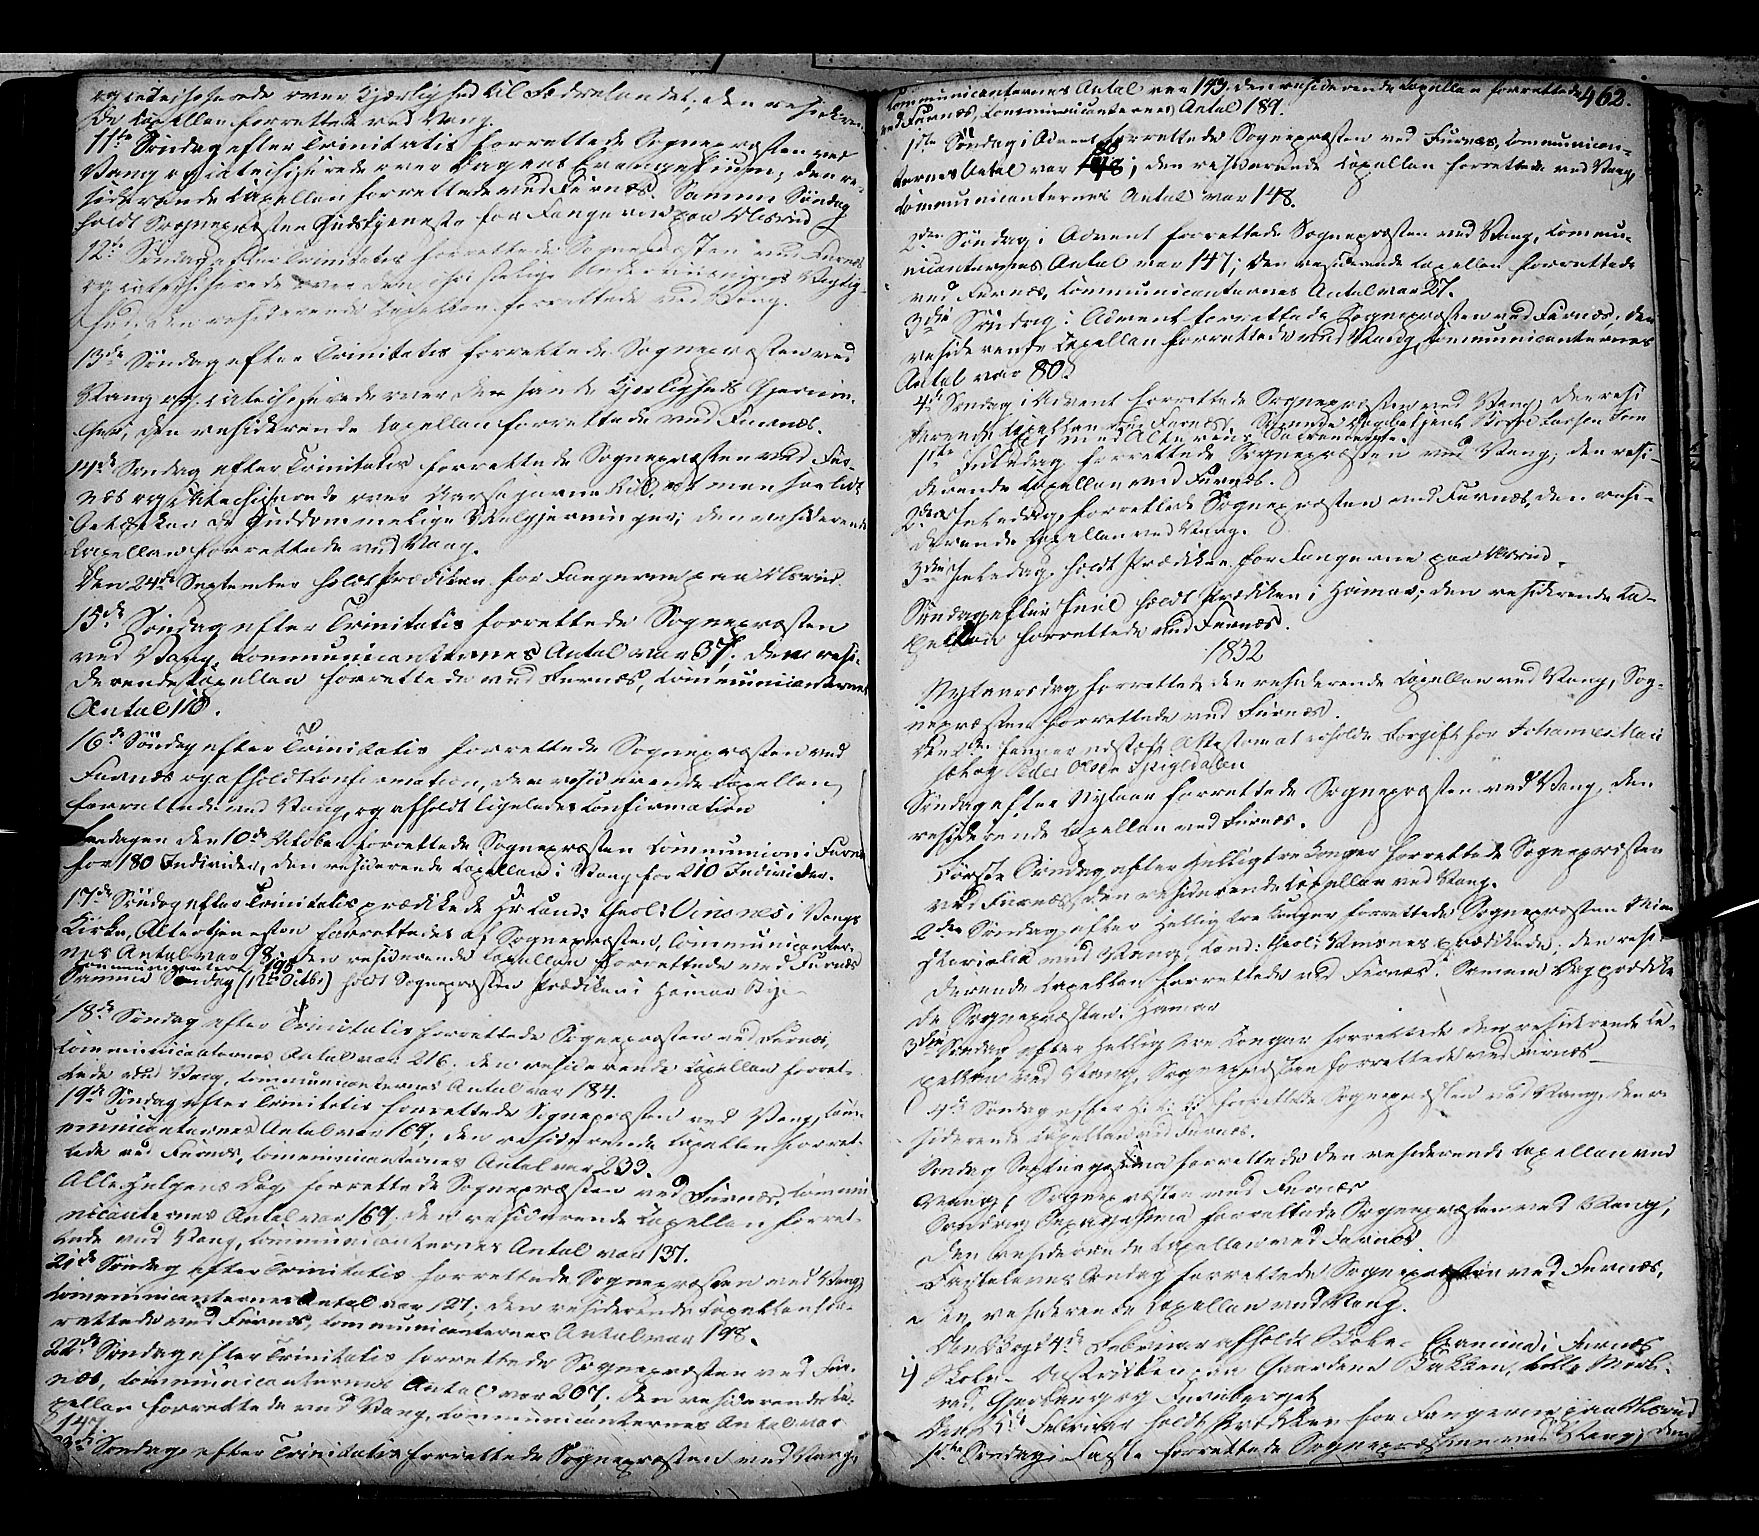 og catechiserede over Kjærlighed til Fædrelandet; den resideren-
de Capellan forrettede ved Vang.
11te Søndag efter Trinitatis forrettede Sognepræsten ved
Vang og catechiserede over Dagens Evangelium; den re-
siderende Capellan forrettede ved Furnæs. Samme Søndag
holdt Sognepræsten Gudstjeneste for Fangerne paa
12te Søndag efter Trinitatis forrettede Sognepræsten ved Furnæs
og catechiserede over den Underviisnings Vigtig-
hed; den residerende Capellan forrettede ved Vang.
13de Søndag efter Trinitatis forrettede Sognepræsten ved
Vang og catechiserede over den sande Kjærligheds Gjernin-
ger; den residerende Capellan forrettede ved Furnæs.
14de Søndag efter Trinitatis forrettede Sognepræsten ved Fur-
næs og catechiserede over Aarsagerne til, at man saa lidt
betænker de Guddommelige Velgjerninger; den residerende
Capellan forrettede ved Vang.
Den 24de September holdt Prædiken for Fangerne paa
15de Søndag efter Trinitatis forrettede Sognepræsten
ved Vang, Communicanternes Antal var 37; den resi-
derende Capellan forrettede ved Furnæs, Communicanternes
Antal 110.
16de Søndag efter Trinitatis forrettede Sognepræsten ved
Furnæs og afholdt Confirmation, den residerende Capellan
forrettede ved Vang, og afholdt ligeledes Confirmation
Løverdagen den 10de Octobr forrettede Sognepræsten Communion i Furnæs
for 180 Individer, den residerende Capellan i Vang for 210 Individer.
17de Søndag efter Trinitatis prædikede Hr Cand: theol: Vinsnes i Vangs
Kirke, Altertjenesten forrettedes af Sognepræsten, Communicanter-
nes Antal var 98; den residerende Capellan forrettede ved Furnæs
Communicantern. 195.
Samme Søndag holdt Sognepræsten Prædiken i Hamar By.
18de Søndag efter Trinitatis forrettede Sognepræsten ved Furnæs,
Communicanternes Antal var 216; den residerende Capellan forret-
tede ved Vang, Communicanternes Antal var 184.
19de Søndag efter Trinitatis forrettede Sognepræsten ved Vang, Com-
municanternes Antal var 169; den residerende Capellan forret-
tede ved Furnæs, Communicanternes Antal var 233.
Alle Helgens Dag forrettede Sognepræsten ved Furnæs, Commu-
nicanternes Antal var 169; den residerende Capellan forret-
tede ved Vang, Communicanternes Antal var 137.
21de Søndag efter Trinitatis forrettede Sognepræsten ved Vang,
Communicanternes Antal var 127; den residerende Capellan for-
rettede ved Furnæs, Communicanternes Antal var 198.
22de Søndag efter Trinitatis forrettede Sognepræsten ved Fur-
næs, Communicanternes Antal var 207; den residerende Ca-
pellan forrettede ved Vang, Communicanternes Antal var
147.
23de Søndag efter Trinitatis forrettede Sognepræsten ved Vang,
462.
Communicanternes Antal var 143; den residerende Capellan forrettede
ved Furnæs, Communicanternes Antal 189.
1ste Søndag i Advent forrettede Sognepræsten ved Furnæs, Communican-
ternes Antal var 88; den residerende Capellan forrettede ved Vang,
Communicanternes Antal var 148.
2den Søndag i Advent forrettede Sognepræsten ved Vang, Commu-
nicanternes Antal var 147; den residerende Capellan forrettede
ved Furnæs, Communicanternes Antal var 27.
3die Søndag i Advent forrettede Sognepræsten ved Furnæs, den
residerende Capellan forrettede ved Vang, Communicanternes
Antal var 80.
4de Søndag i Advent forrettede Sognepræsten ved Vang, den resi-
derende Capellan ved Furnæs. Larsen
med Alterens Sacramente.
1ste Juledag forrettede Sognepræsten ved Vang; den resi-
derende Capellan ved Furnæs.
2den Juledag forrettede Sognepræsten ved Furnæs, den resi-
derende Capellan ved Vang.
3die Juledag holdt Prædiken for Fangerne paa
Søndag efter Juul holdt Prædiken i Hamar; den residerende Ca-
pellan forrettede ved Furnæs.
1832
Nytaarsdag forrettede den residerende Capellan ved Vang, Sog-
nepræsten forrettede ved Furnæs.
Den Januar udstædt Attest om at erholde for Johannes
og Peder Olsen
Søndag efter Nytaar forrettede Sognepræsten ved Vang, den
residerende Capellan ved Furnæs.
Første Søndag efter Hellig tre Konger forrettede Sognepræsten
ved Furnæs, den residerende Capellan ved Vang.
2den Søndag efter Hellig tre Konger forrettede Sognepræsten Mini-
sterialia ved Vang, Cand: theol: Vinsnes prædikede; den resi-
derende Capellan forrettede ved Furnæs. Samme Dag prædike-
de Sognepræsten i Hamar
3die Søndag efter Hellig tre Konger forrettede den residerende Ca-
pellan ved Vang, Sognepræsten forrettede ved Furnæs
4de Søndag efter H. 3 K. forrettede Sognepræsten ved Vang, den re-
siderende Capellan ved Furnæs.
Søndag Septuagesima forrettede den residerende Capellan ved
Vang, Sognepræsten ved Furnæs
Søndag Sexagesima forrettede Sognepræsten ved Vang,
den residerende Capellan ved Furnæs.
Fastelavns Søndag forrettede Sognepræsten ved Furnæs,
den residerende Capellan ved Vang.
4de Februar afholdt Skole-Examina i Furnæs
Skole-Distrikter paa Gaardene Bakken,
og Furuberget
Den Februar holdt Prædiken for Fangerne paa
1ste Søndag i Faste forrettede Sognepræsten ved Vang, den